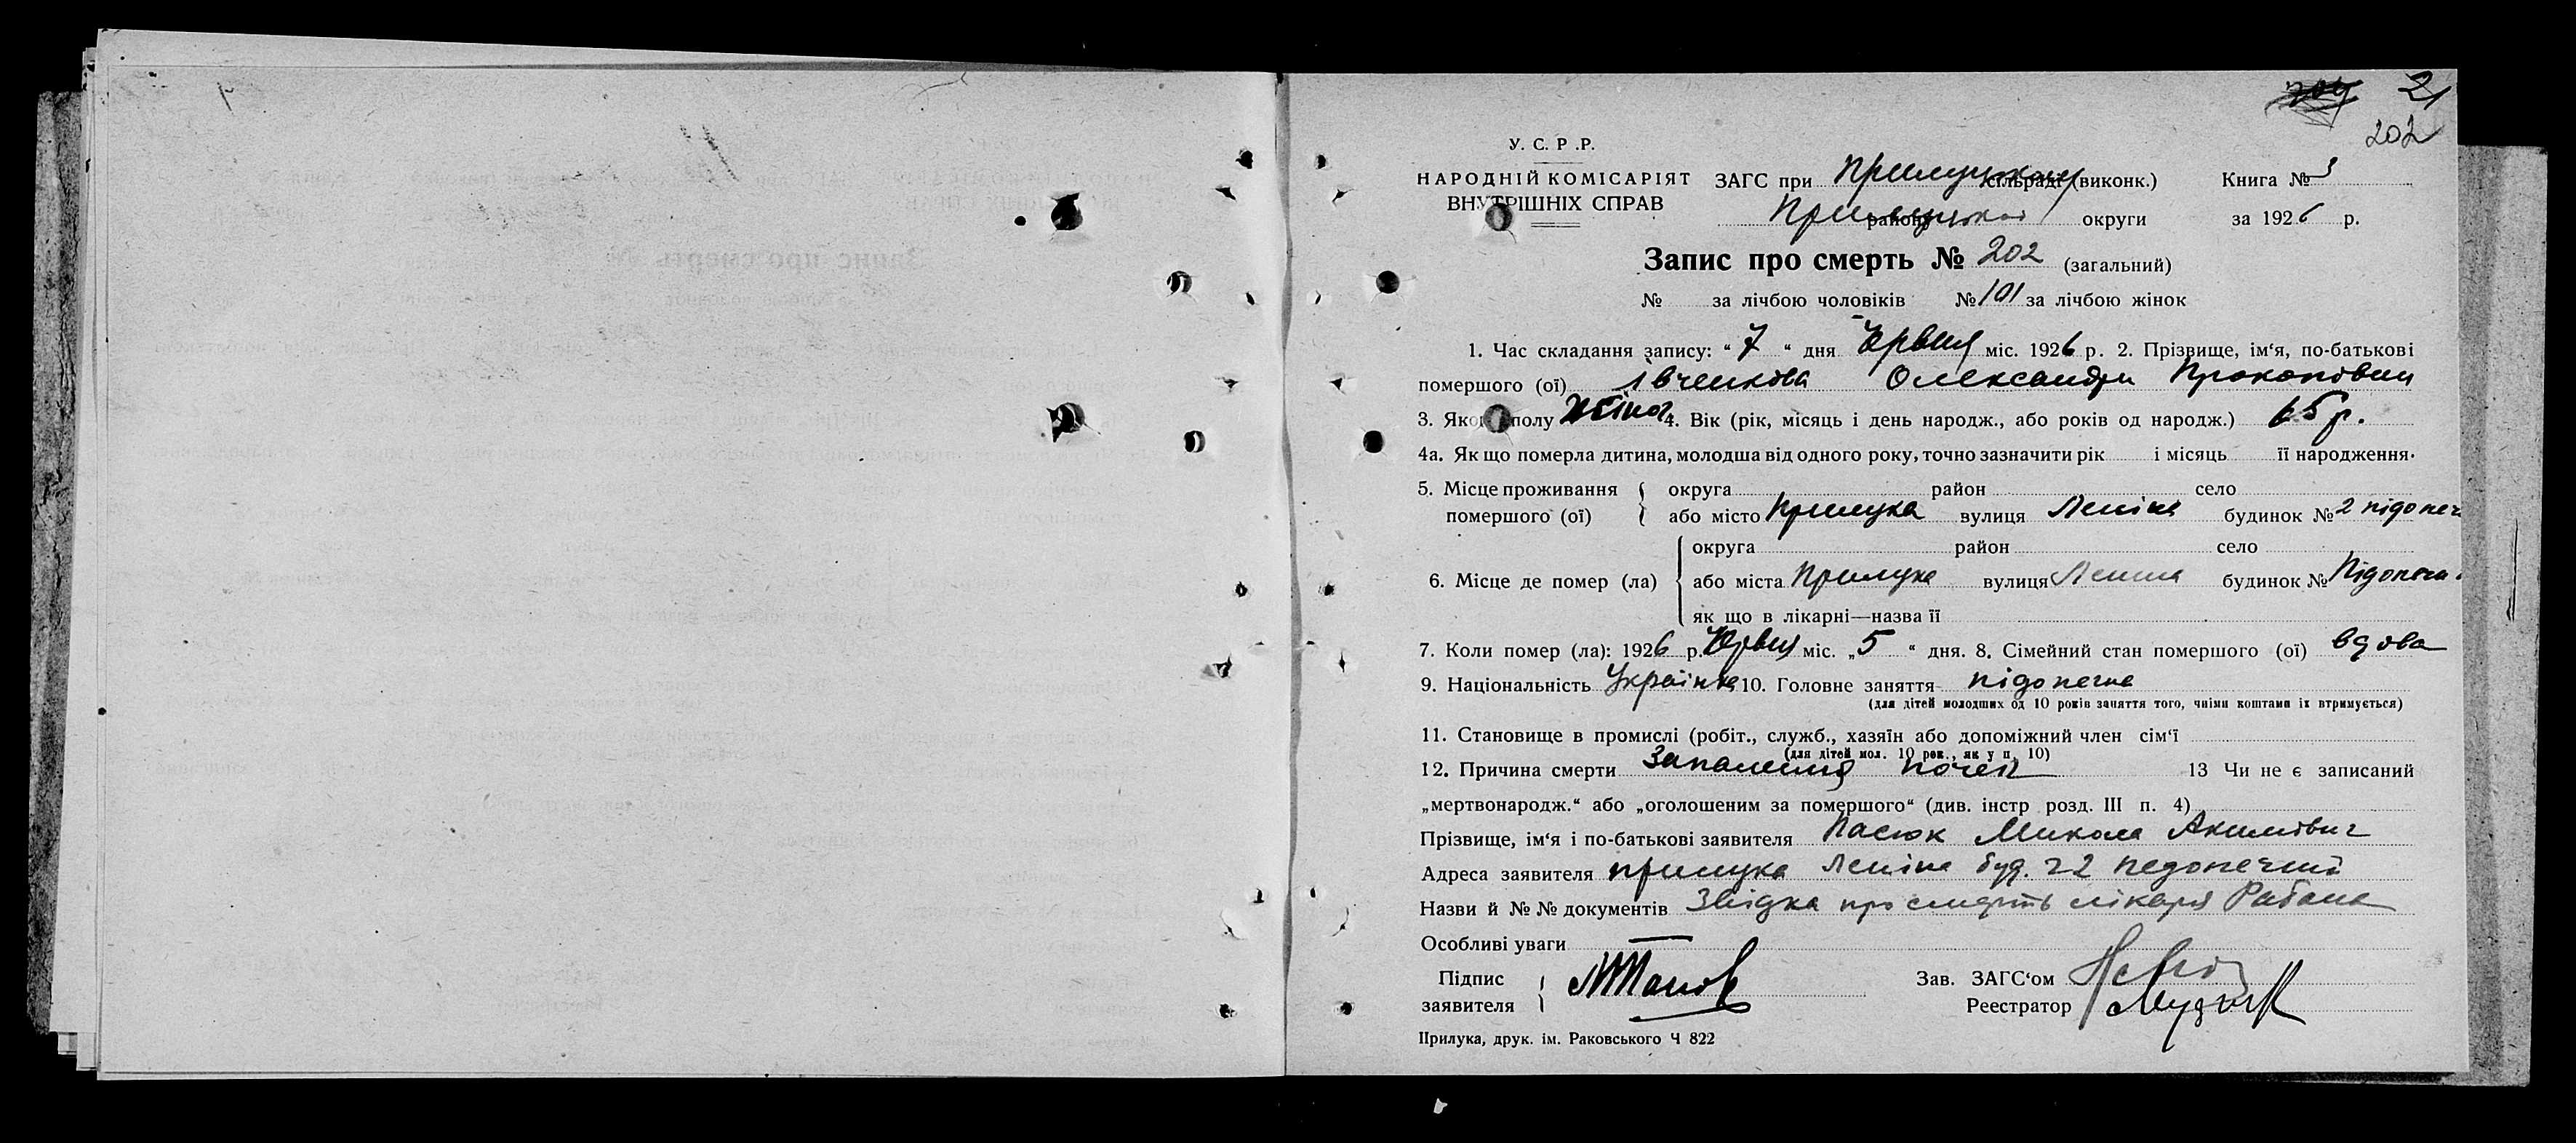 21
202
У. С. Р .Р.
НАРОДНІЙ КОМІСАРІЯТ
ВНУТРІШНІХ СПРАВ
ЗАГС при Прилуцькому сільраді (виконк.) Книга № 3
Прилуцької району округи за 1926 р.
Запис про смерть № 202 (загальний)
№ за лічбою чоловіків № 101 за лічбою жінок
1. Час складання запису: “ 7 “ дня Червня міс. 1926 р. 2. Прізвище, ім‘я, по-батькові
помершого (ої) Олександри
3. Якого полу 4. Вік (рік, місяць і день народж., або років од народж.) 65 р.
4а. Як що померла дитина, молодша від одного року, точно зазначити рік і місяць її народження.
5. Місце проживання округа район село
помершого (ої) або місто Прилука вулиця Леніна будинок № 2 підопеч
6. Місце де помер (ла) округа район село
або міста Прилука вулиця Леніна будинок №
як що в лікарні—назва її
7. Коли помер (ла): 1926 р. Червня міс. „ 5 “ дня. 8. Сімейний стан помершого (ої) вдова
9. Національність Українка 10. Головне заняття підопечна
(для дітей молодших од 10 років заняття того, чиїми коштами їх втримується)
11. Становище в промислі (робіт., служб., хазяїн або допоміжний член сім‘ї
(для дітей мол. 10 рок., як у п. 10)
12. Причина смерти Запалення почек 13 Чи не є записаний
„мертвонародж.“ або „оголошеним за помершого“ (див. інстр розд. III п. 4)
Прізвище, ім‘я і по-батькові заявителя Пасюк Микола Акимович
Адреса заявителя Прилука Леніна буд. ч 2 педопечний
Назви й № № документів Звідка про смерть лікаря
Особливі уваги
Підпис
заявителя
Зав. ЗАГС‘ом
Реестратор Музик
Прилука, друк. ім. Раковського Ч 822